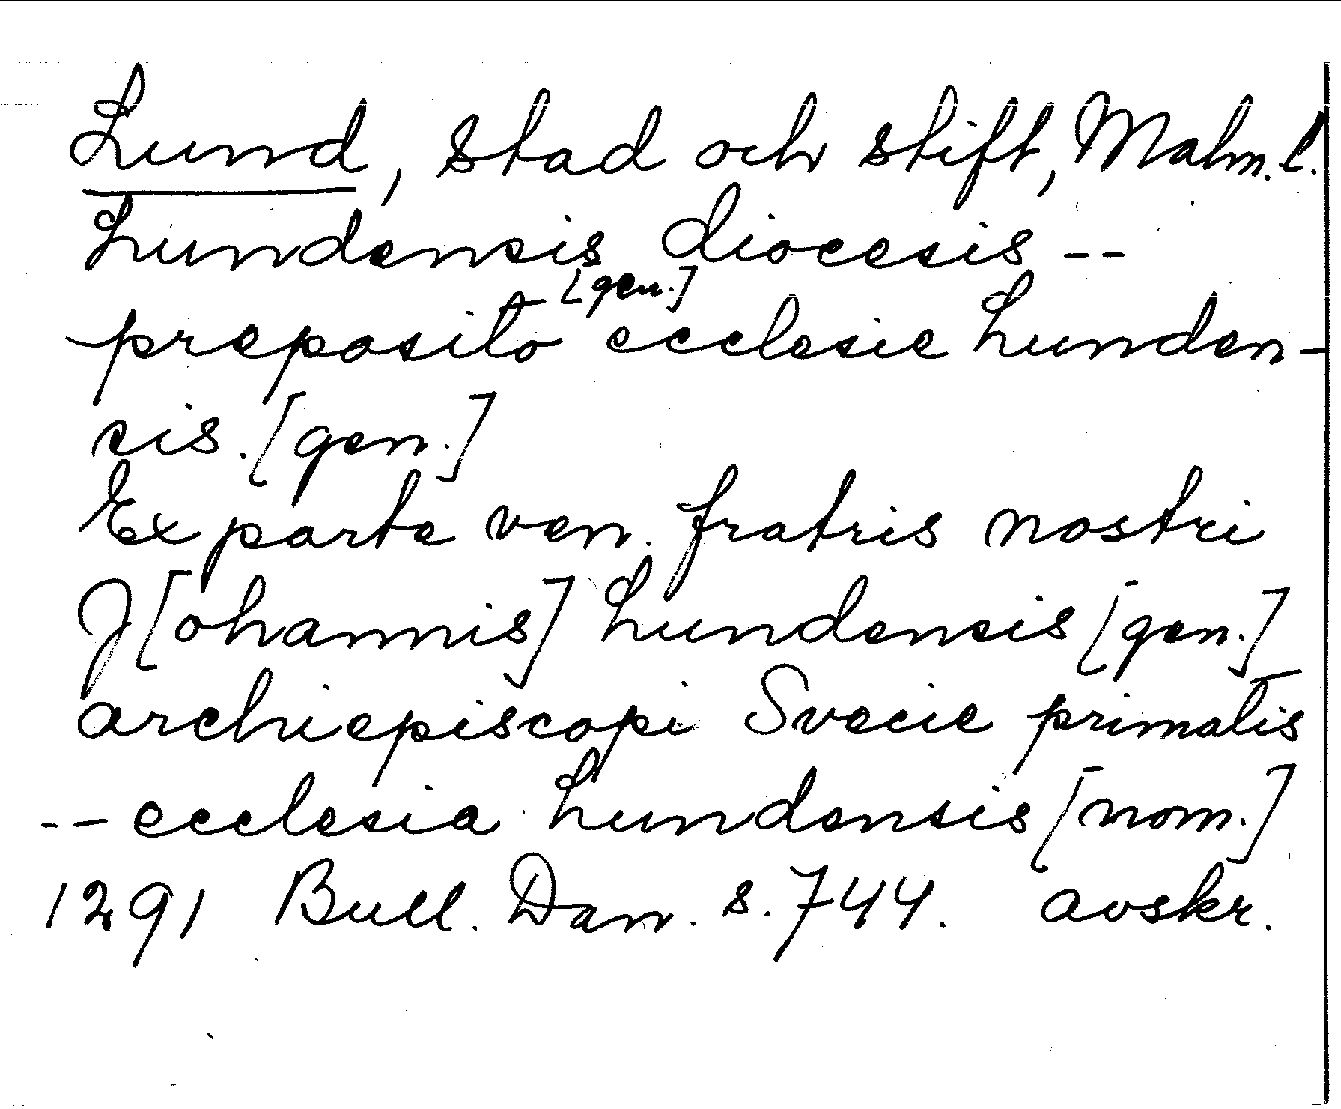 Lund, stad och stift, Malm. l.
Lundensis diocesis --
[gen.]
preposito ecclesie Lunden-
sis. [gen.]
Ex parte ven. fratris nostri
J[ohannis] Lundensis [gen.]
archiepiscopi Svecie primatis
-- ecclesia Lundensis [nom.]
1291 Bull. Dan. s. 744. avskr.